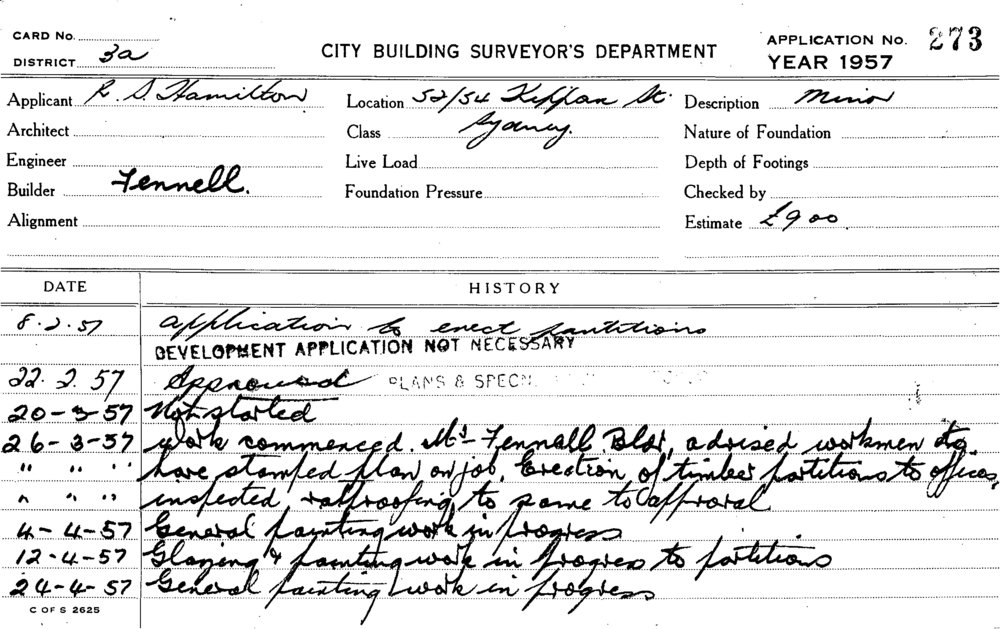 CARD No.
DISTRICT 3a
CITY BUILDING SURVEYOR'S DEPARTMENT
APPLICATION No. 273
YEAR 1957
Applicant R. S. Hamilton
Location 52/54 Kippax St.
Sydney.
Description Minor
Architect
Class
Nature of Foundation
Engineer
Live Load
Depth of Footings
Builder Fennell.
Foundation Pressure
Checked by
Alignment
Estimate £900
DATE HISTORY
8.2.57 Application to erect partitions
DEVELOPMENT APPLICATION NOT NECESSARY
22.2.57 Approved PLANS & SPECN.
20-3-57 Not started
26-3-57 Work commenced. Mr Fennell Bldr, advised workmen to
" " " have stamped plan on job. Erection of timber partitions to offices,
" " " inspected, ratproofing to same to approval
4-4-57 General painting work in progress
12-4-57 Glazing & painting work in progress to partitions
24-4-57 General painting work in progress
C OF S 2625